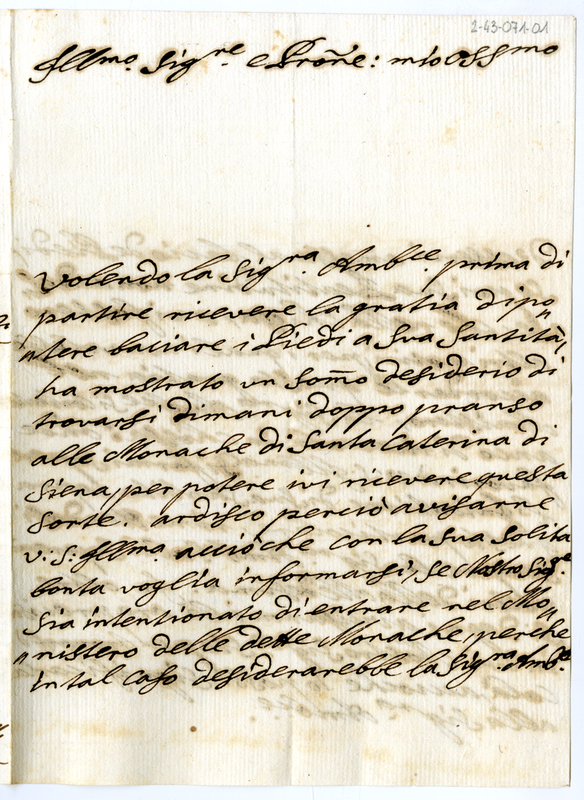 2-43-071-01
Illmo. Sigre e Proñe: mio Ossmo
Volendo la Sigra. Ambce. prima di
partire ricevere la gratia di po„
„tere baciare i Piedi a Sua Santità,
ha mostrato un Som̃o desiderio di
trovarsi dimani doppo pranso
alle Monache di Santa Caterina di
Siena, per potere ivi ricevere questa
Sorte. ardisco perciò avisarne
V: S: Illma. acciòche con la sua solita
bonta voglia informarsi, se Nostro Sige.
sia intentionato di entrare nel Mo„
„nistero delle dette Monache, perche
in tal caso desiderarebbe la Sigra. Ambe.